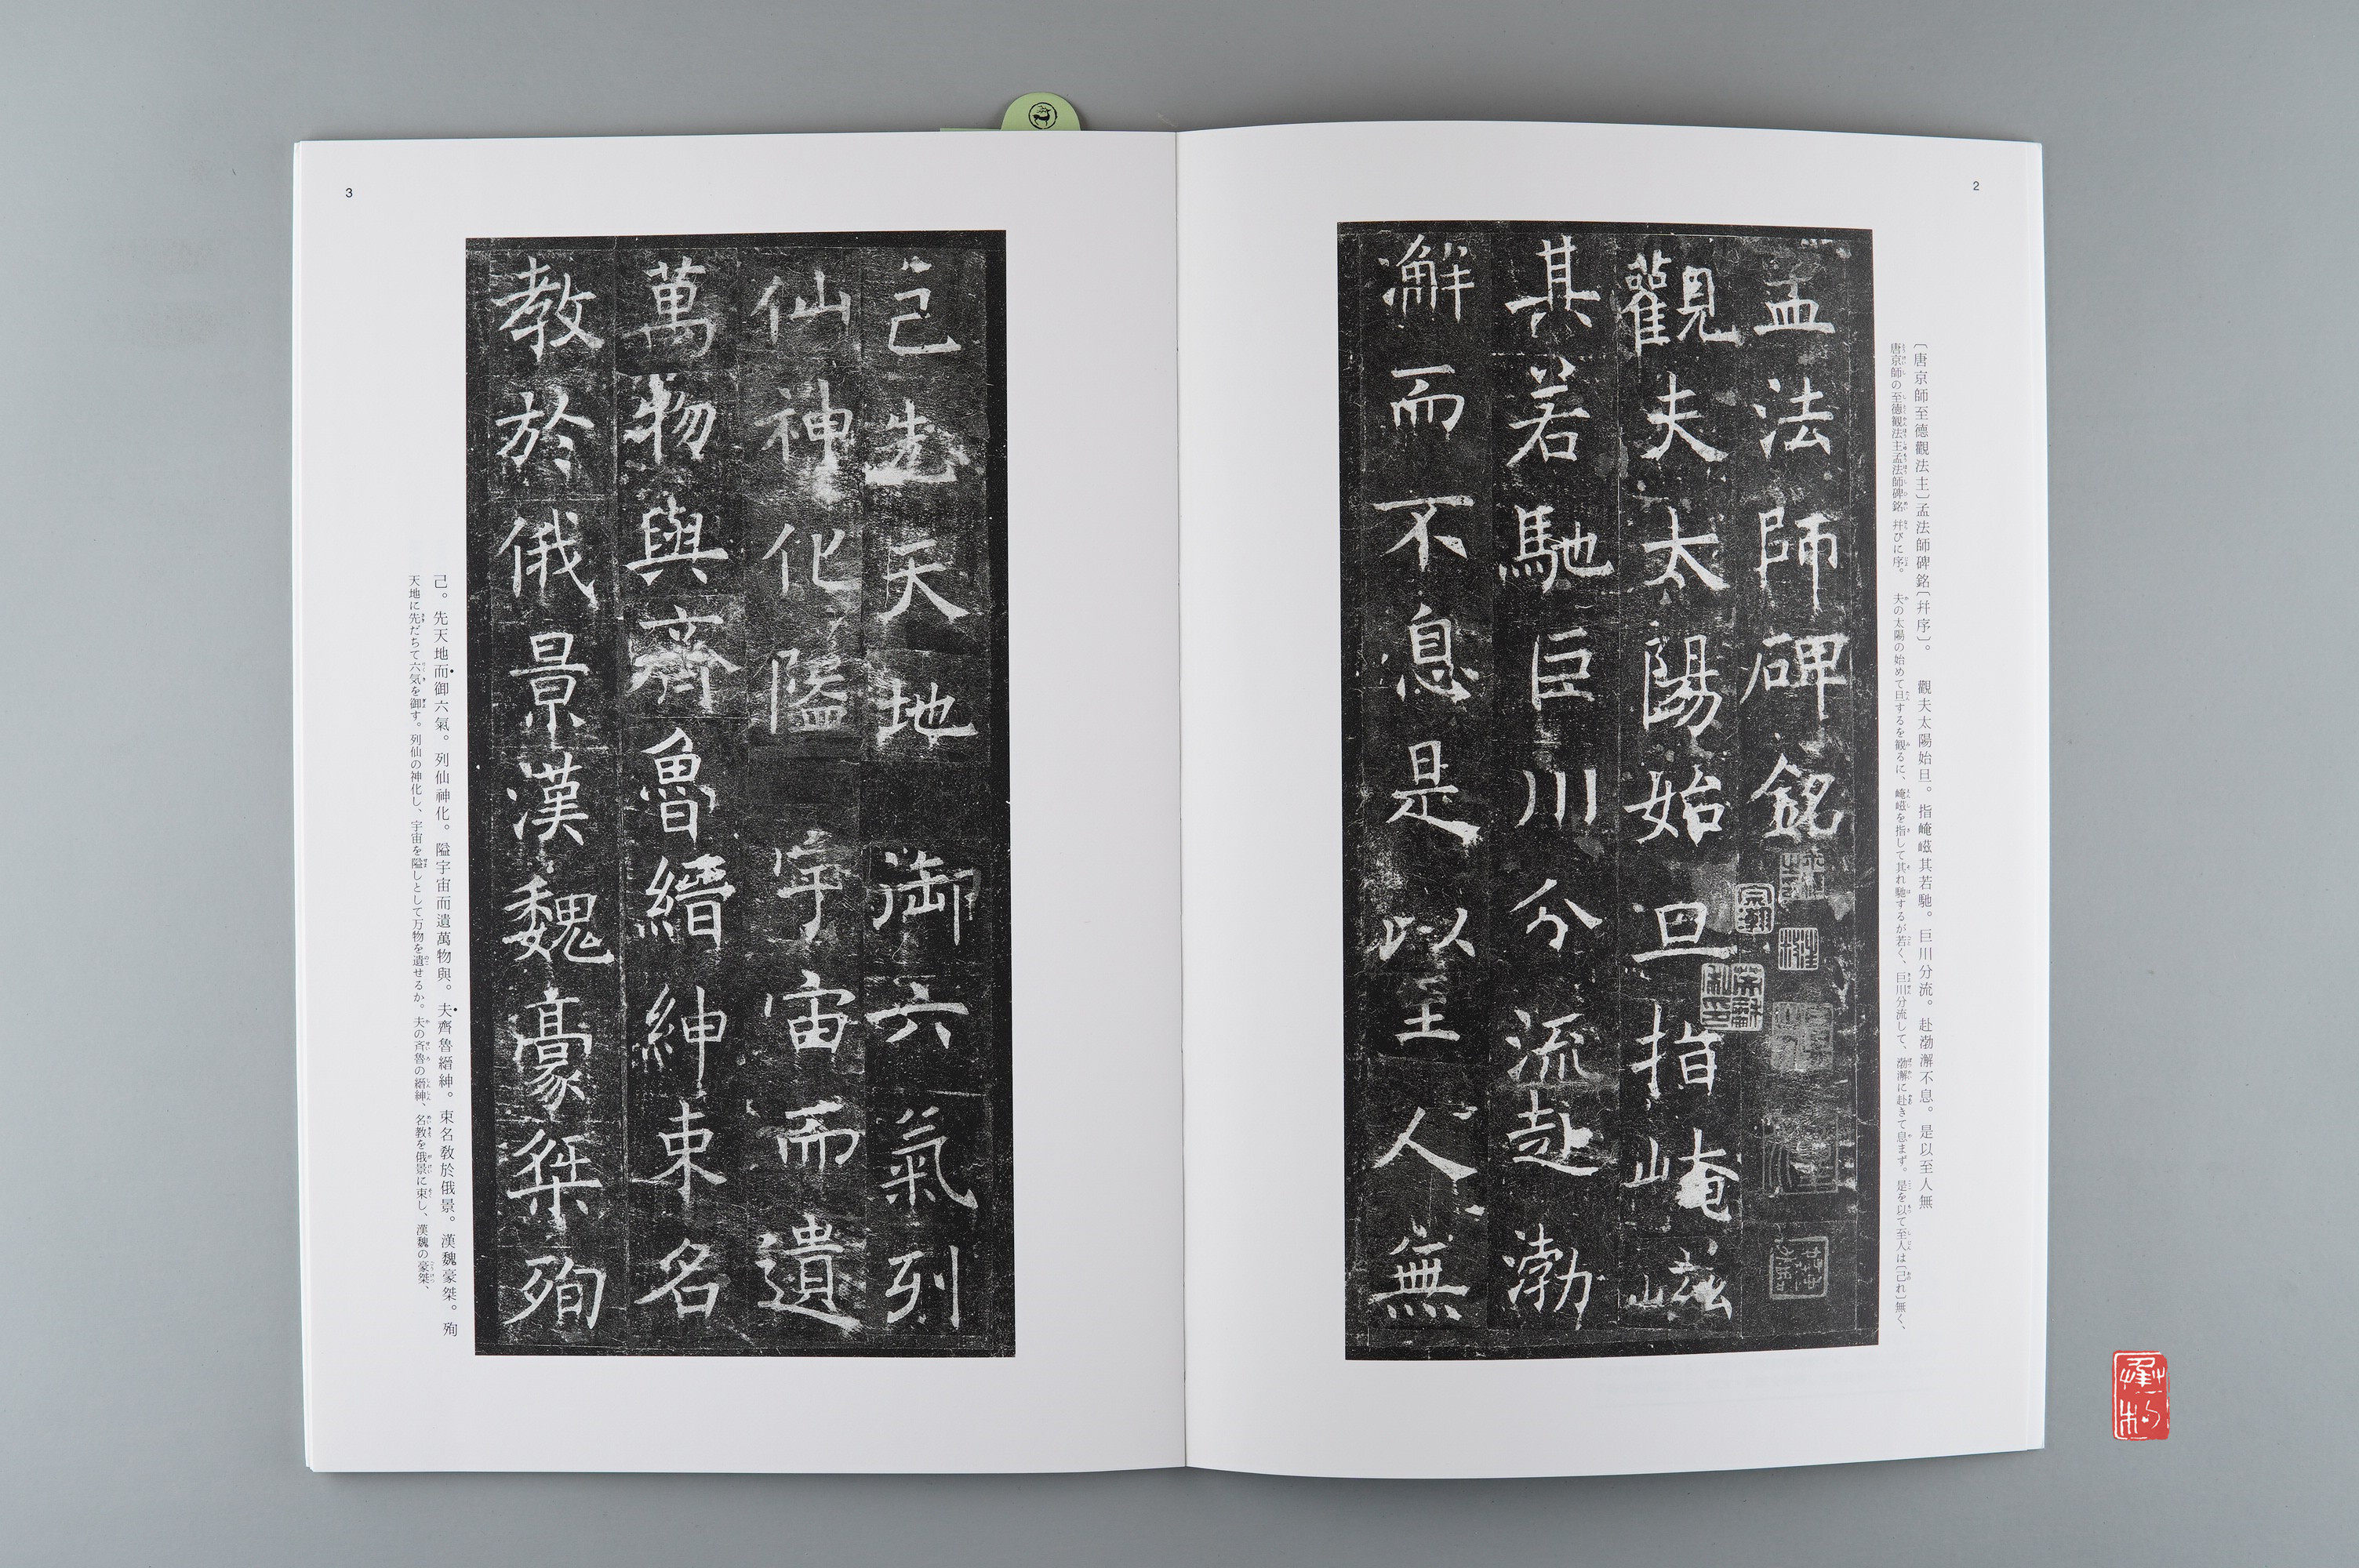 2
〔唐京師至德觀法主〕孟法師碑銘〔幷序〕。 觀夫太陽始旦。指崦嵫其若馳。巨川分流。赴渤澥不息。是以至人無
唐京師の至徳観法主孟法師碑銘 幷びに序。 夫の太陽の始めて旦するを観るに、崦嵫を指して其れ馳するが若く、巨川分流して、渤澥に赴きて息まず。是を以て至人は〔己れ〕無く、
孟法師碑銘
觀夫太陽始旦指崦嵫
其若馳巨川分流赴渤
澥而不息是以至人無
3
己先天地御六氣列
仙神化隘宇宙而遺
萬物與齊魯縉紳束名
教於俄景漢魏豪桀殉
己。先天地而御六氣。列仙神化。隘宇宙而遺萬物與。夫齊魯縉紳。束名敎於俄景。漢魏豪桀。殉
天地に先だちて六気を御す。列仙の神化し、宇宙を隘しとして万物を遺せるか。夫の斉魯の縉紳、名教を俄景に束し、漢魏の豪桀、